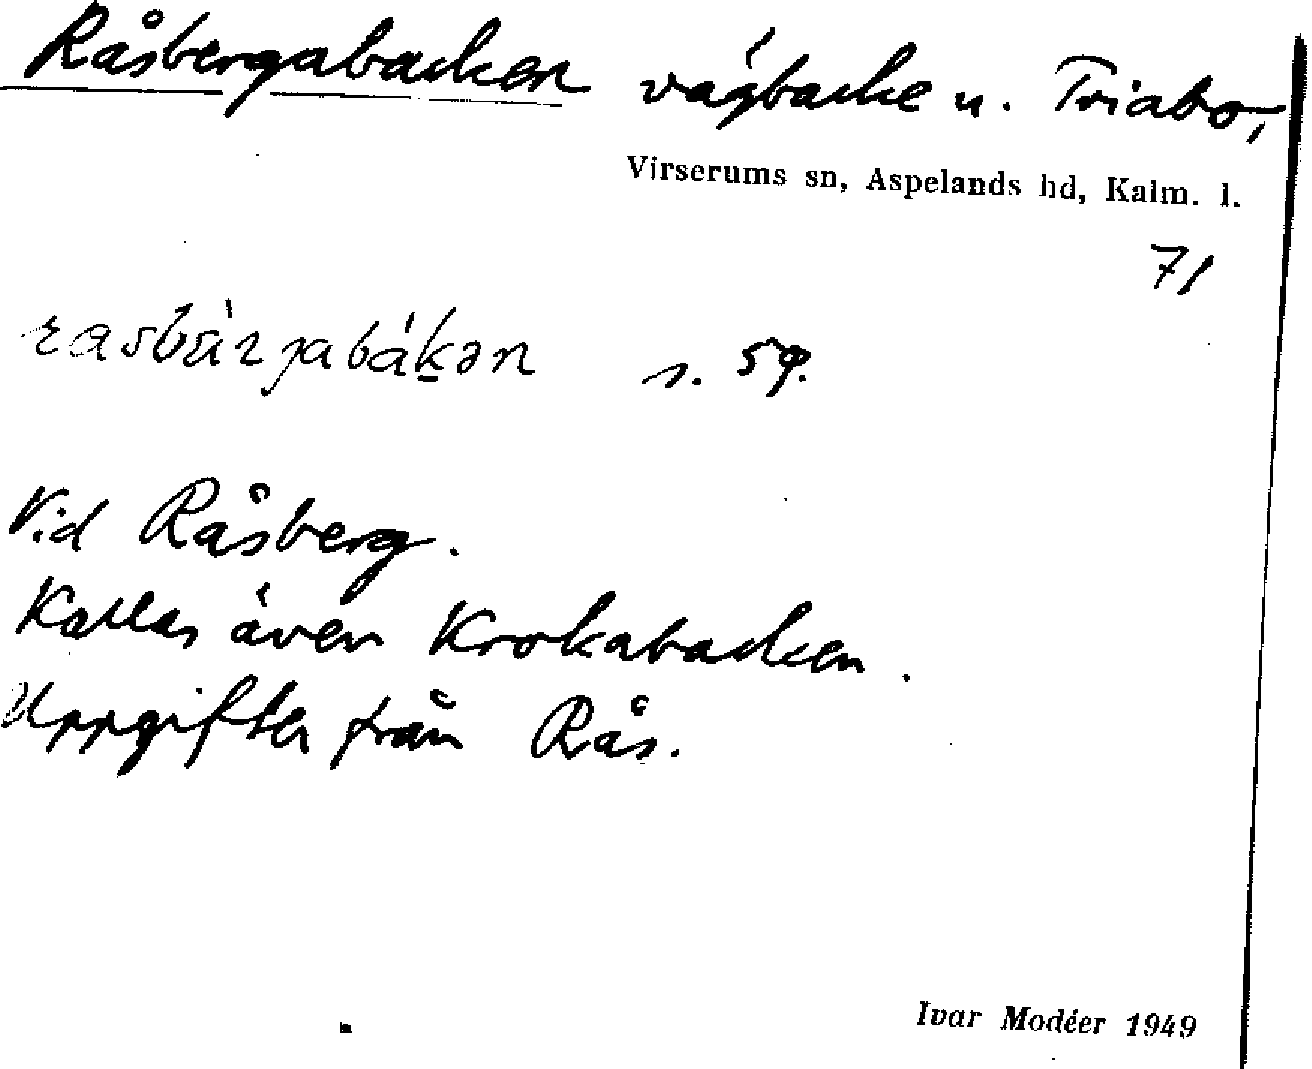 Råsbergabacken vägbacke u. Triabo,
Virserums sn, Aspelands hd, Kalm. l.
71
s. 59.
Vid Råsberg.
Kallas även Krokabacken.
Uppgifter från Rås.
Ivar Modéer 1949